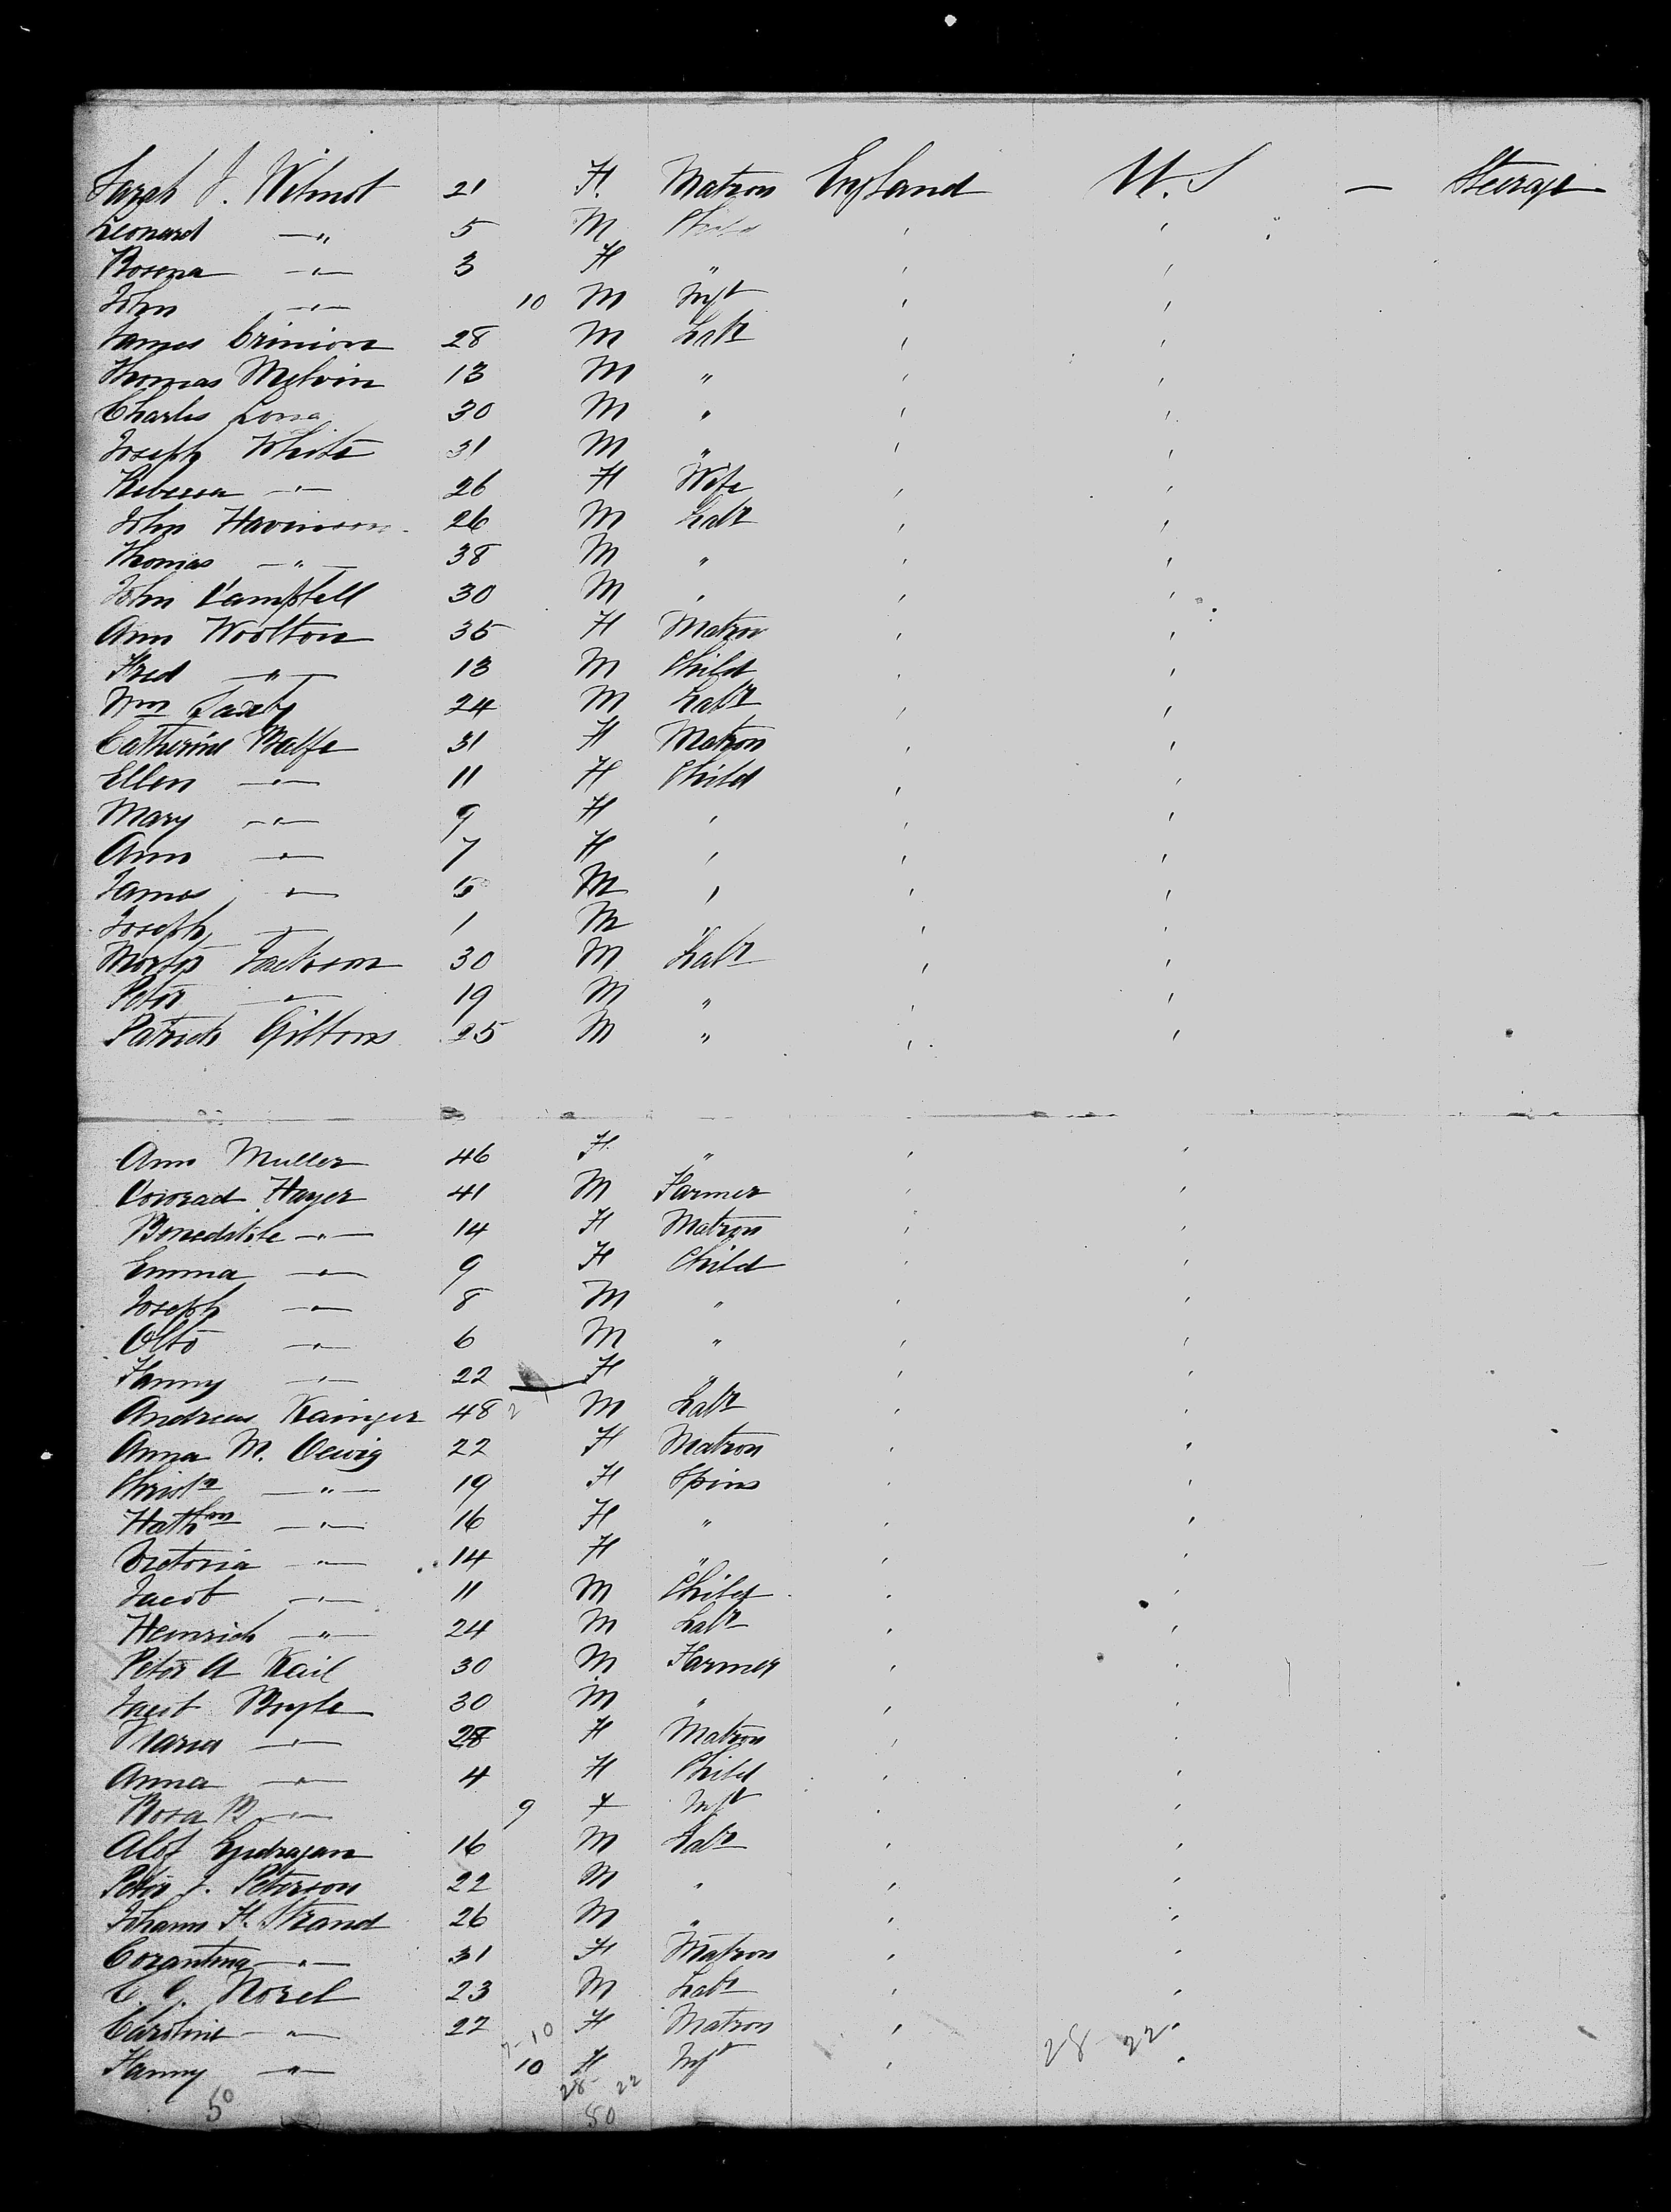 Sarah J. Wilmot 21 F. Matron England U.S — Steerage
Leonard —"— 5 M Child ' '
Rosena —"— 3 F " ' '
John —"— 10 M Inft ' '
James Crinion 28 M Labr ' '
Thomas Melvin 13 M " ' '
Charles 30 M " ' '
Joseph White 31 M " ' '
Rebecca —"— 26 F Wife ' '
John Havinson 26 M Labr ' '
Thomas —"— 38 M " ' '
John Campbell 30 M " ' '
Ann Woolton 35 F Matron ' '
Fred —"— 13 M Child ' '
Wm 24 M Labr ' '
Catherine Balfe 31 F Matron ' '
Ellen —"— 11 F Child ' '
Mary —"— 9 F ' ' '
Ann —"— 7 F ' ' '
James —"— 5 M ' ' '
Joseph —"— 1 M " ' '
Jackson 30 M Labr ' '
Peter —"— 19 M " ' '
Patrick Gibbons 25 M " ' '
Ann Muller 46 F. " ' '
Conrad Hayer 41 M Farmer ' '
—"— 14 F Matron ' '
Emma —"— 9 F Child ' '
Joseph —"— 8 M " ' '
Otto —"— 6 M " ' '
Fanny —"— 22 F " ' '
Andreas Kainger 48 2 M Labr ' '
Anna M. Oewig 22 F Matron ' '
—"— 19 F Spins ' '
Kathrn —"— 16 F " ' '
Victoria —"— 14 F " ' '
Jacob —"— 11 M Child ' '
Heinrich —"— 24 M Labr ' '
Peter A Kail 30 M Farmer ' '
Jacob 30 M " ' '
Maria —"— 28 F Matron ' '
Anna —"— 4 F Child ' '
Rosa B —"— 9 F Inft ' '
16 M Labr ' '
Peter J. Peterson 22 M " ' '
Johann F. Strand 26 M " ' '
—"— 31 F Matron ' '
Norel 23 M Labr ' '
Caroline —"— 22 F Matron ' '
Fanny —"— 10 F Inft ' 28 22 '
28 22
50 50